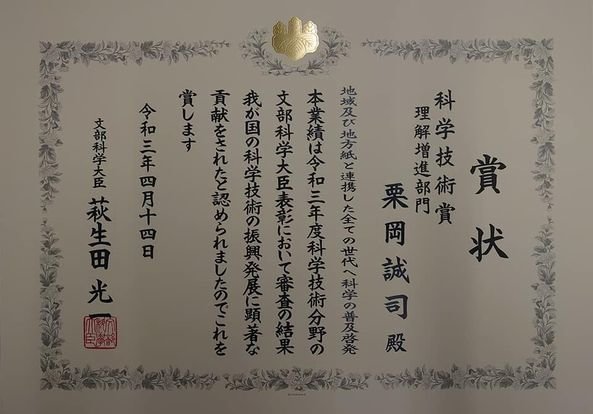 賞状
科学技術賞
理解増進部門
栗岡誠司 殿
地域及び地方紙と連携した全ての世代へ科学の普及啓発
本業績は令和三年度科学技術分野の
文部科学大臣表彰において審査の結果
我が国の科学技術の振興発展に顕著な
貢献をされたと認められましたのでこれを
賞します
令和三年四月十四日
文部科学大臣 萩生田光一